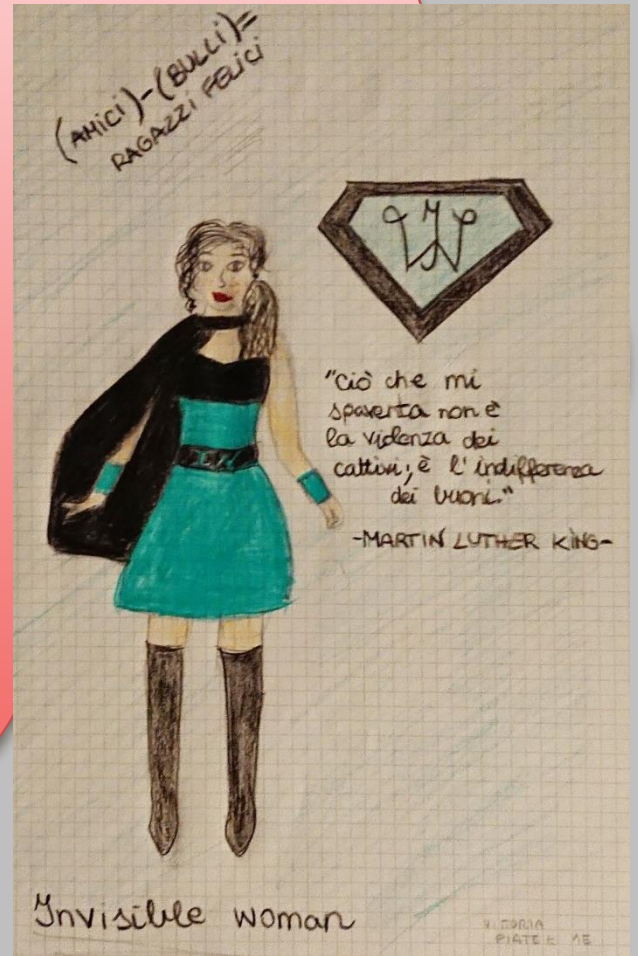 (AMICI)-(BULLI)=
RAGAZZI FELICI
IW
"Ciò che mi
spaventa non è
la violenza dei
cattivi; è l'indifferenza
dei buoni."
-MARTIN LUTHER KING-
Invisible woman
VITTORIA
PIATEK 1E